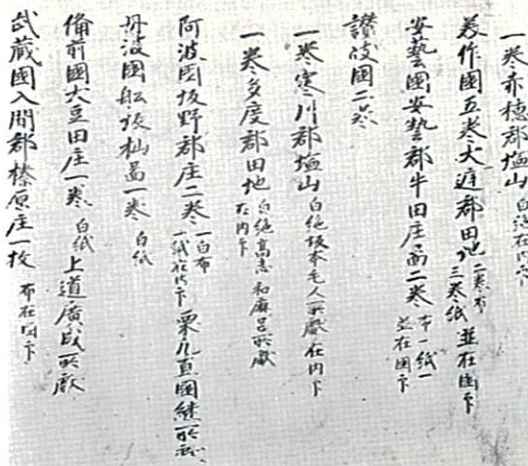 一巻赤穂郡塩山 白絁在内印
美作國五巻大庭郡田地 二巻布 三巻紙 並在國印
安藝國安藝郡牛田庄圖二巻 布一紙一 並在國印
讃岐國二巻
一巻寒川郡塩山 白絁坂本毛人所獻 在内印
一巻多度郡田地 白絁高志和麻呂所獻 在内印
阿波國坂野郡庄二巻 一白布 一紙在内印 粟凡直國継所獻
丹波國船坂杣圖一巻 白紙
備前國大豆田庄一巻 白紙 上道廣成所獻
武蔵國入間郡榛原庄一枚 布在國印